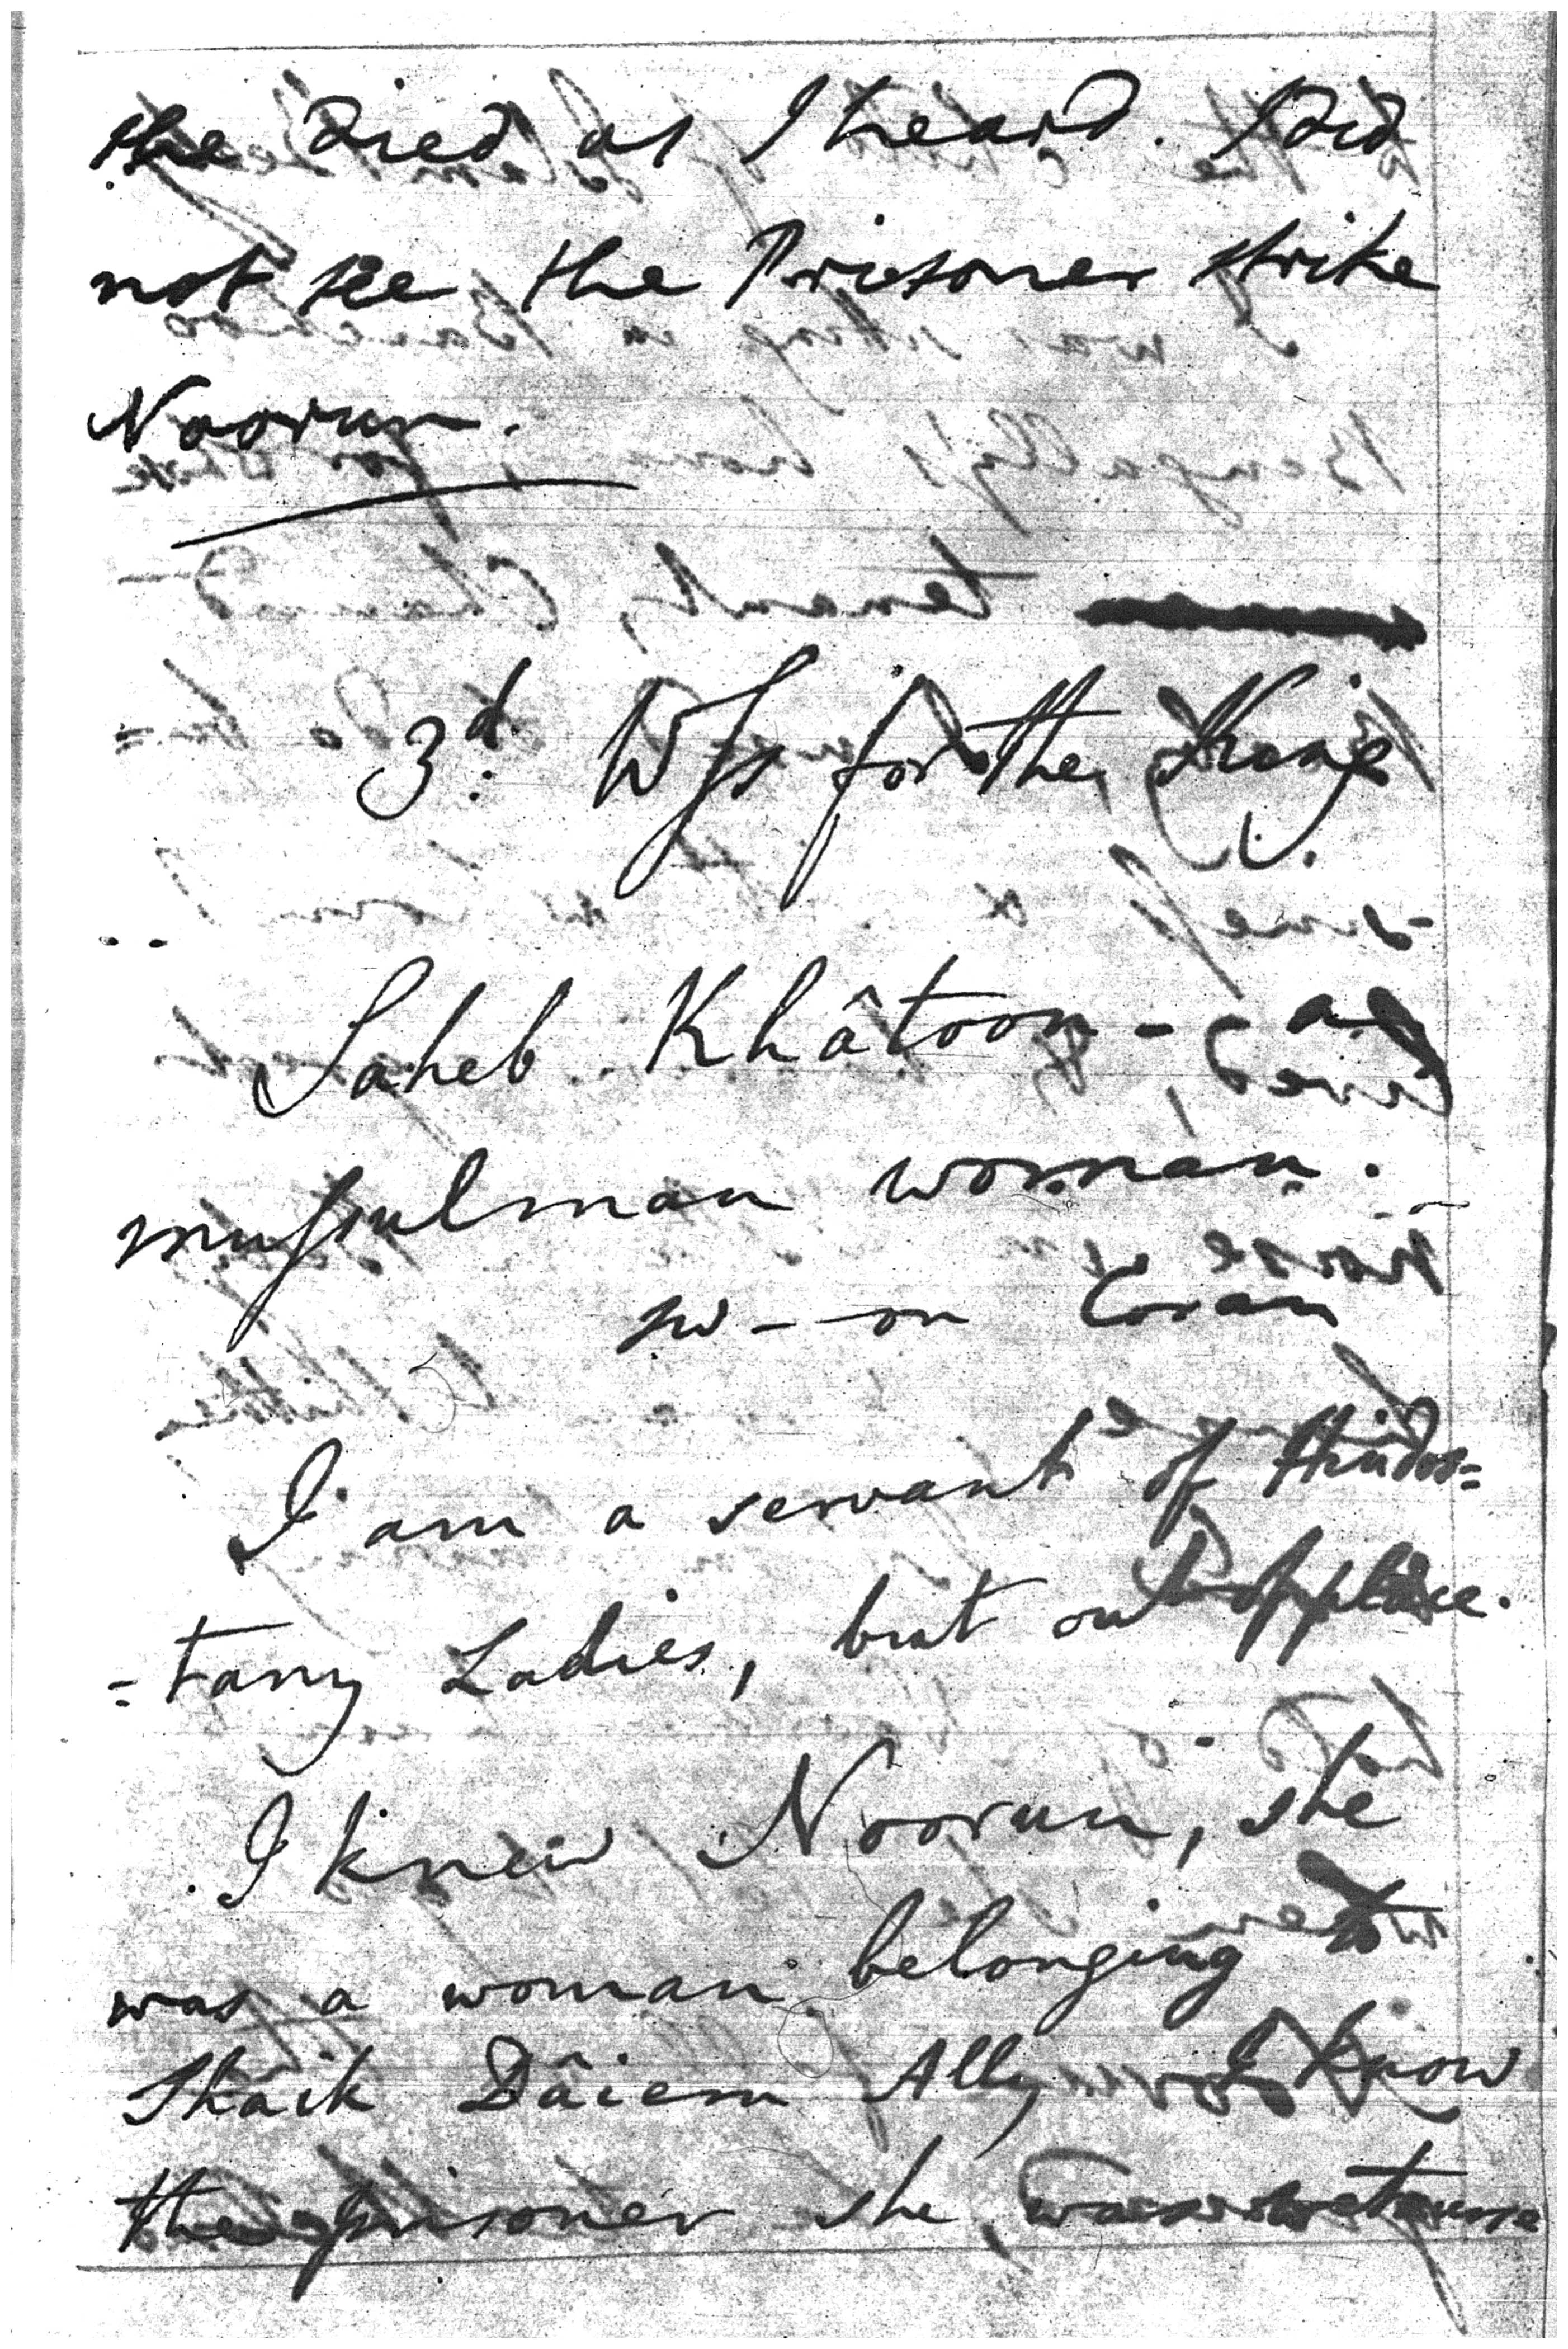 she died as I heard. I did
not see the Prisoner strike
Noorun.
3d. Wſs for the King
Saheb Khâtoon - a
muſsulman woman.
sw - on Coran
I am a servant of Hindos=
=tany Ladies, but out of place.
I knew Noorun, she
was a woman belonging to
Shaik Dâiem Ally I know
the prisoner she was